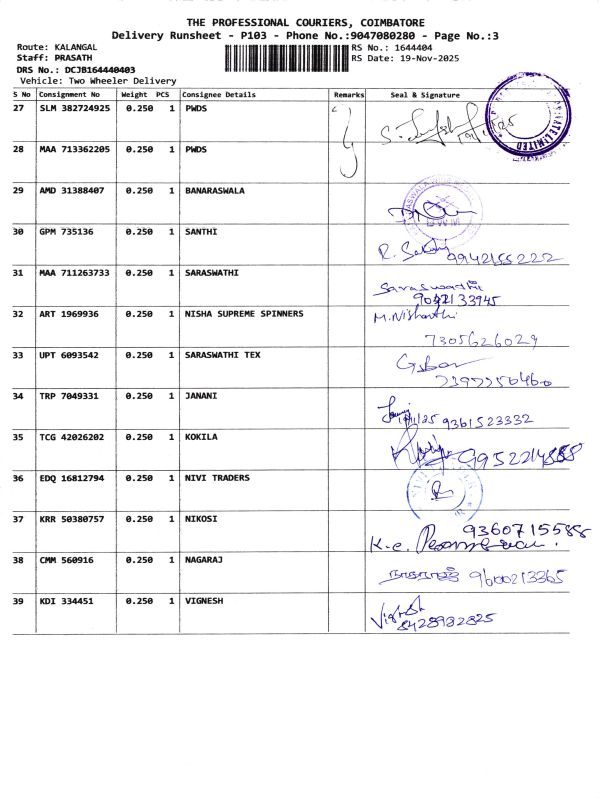 THE PROFESSIONAL COURIERS, COIMBATORE
Delivery Runsheet - P103 - Phone No.:9047080280 - Page No.:3
Route: KALANGAL
RS No.: 1644404
Staff: PRASATH
RS Date: 19-Nov-2025
DRS No.: DCJB164440403
Vehicle: Two Wheeler Delivery
S No Consignment No Weight PCS Consignee Details Remarks Seal & Signature
27 SLM 382724925 0.250 1 PWDS
28 MAA 713362205 0.250 1 PWDS
29 AMD 31388407 0.250 1 BANARASWALA
30 GPM 735136 0.250 1 SANTHI
9942155222
31 MAA 711263733 0.250 1 SARASWATHI
Saraswathi
9042133945
32 ART 1969936 0.250 1 NISHA SUPREME SPINNERS M.Nishanthi
7305626029
33 UPT 6093542 0.250 1 SARASWATHI TEX
34 TRP 7049331 0.250 1 JANANI
9361523332
35 TCG 42026202 0.250 1 KOKILA
9952214888
36 EDQ 16812794 0.250 1 NIVI TRADERS
37 KRR 50380757 0.250 1 NIKOSI
9360715588
38 CMM 560916 0.250 1 NAGARAJ
நாகராஜ் 9600213365
39 KDI 334451 0.250 1 VIGNESH
8428982825